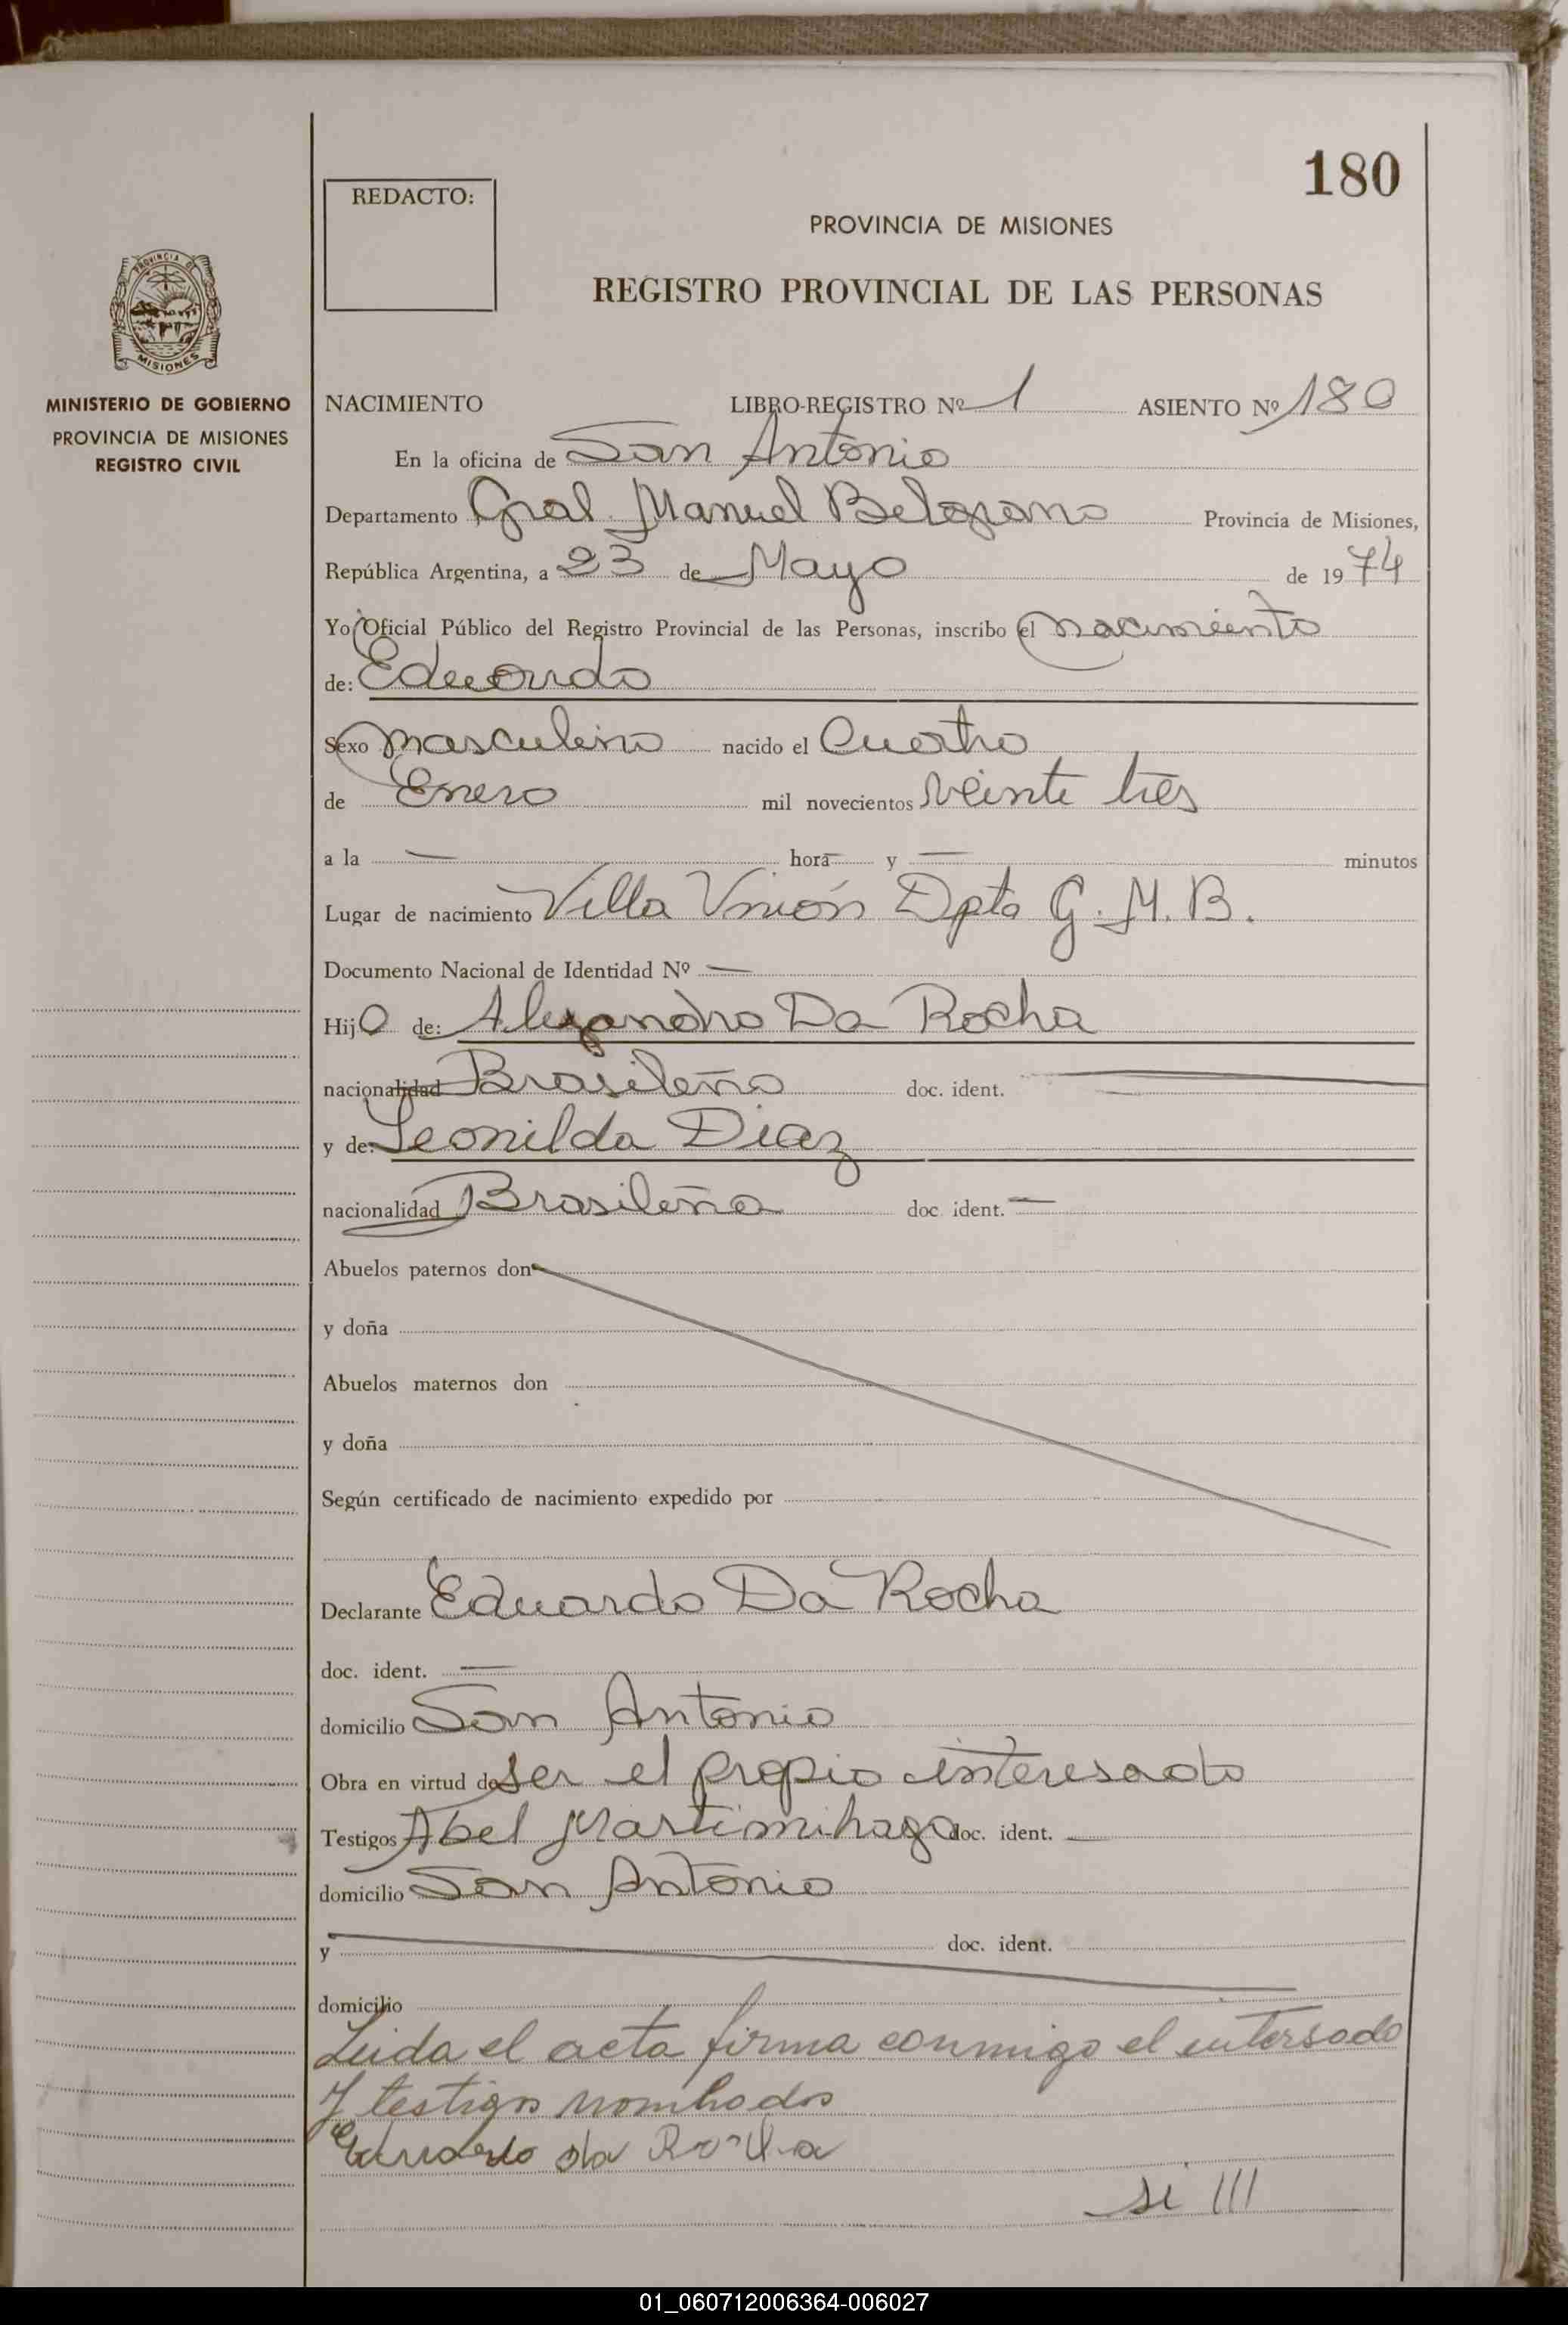 180
REDACTO:
PROVINCIA DE MISIONES
REGISTRO PROVINCIAL DE LAS PERSONAS
PROVINCIA DE
MISIONES
MINISTERIO DE GOBIERNO
PROVINCIA DE MISIONES
REGISTRO CIVIL
NACIMIENTO LIBRO-REGISTRO Nº 1 ASIENTO Nº 180
En la oficina de San Antonio
Departamento Gral. Manuel Belgrano Provincia de Misiones,
República Argentina, a 23 de Mayo de 1974
Yo Oficial Público del Registro Provincial de las Personas, inscribo el nacimiento
de: Eduardo
Sexo masculino nacido el Cuatro
de Enero mil novecientos veinte tres
a la — hora — y — minutos
Lugar de nacimiento Villa Unión Dpto G. M. B.
Documento Nacional de Identidad Nº —
Hijo de: Alejandro Da Rocha
nacionalidad Brasileño doc. ident. —
y de: Leonilda Diaz
nacionalidad Brasileña doc. ident. —
Abuelos paternos don
y doña
Abuelos maternos don
y doña
Según certificado de nacimiento expedido por
Declarante Eduardo Da Rocha
doc. ident. —
domicilio San Antonio
Obra en virtud de ser el propio interesado
Testigos Abel doc. ident. —
domicilio San Antonio
y doc. ident.
domicilio
Leida el acta firma conmigo el intersado
y testigos nombados
Eduardo da Rocha
si///
01_060712006364-006027